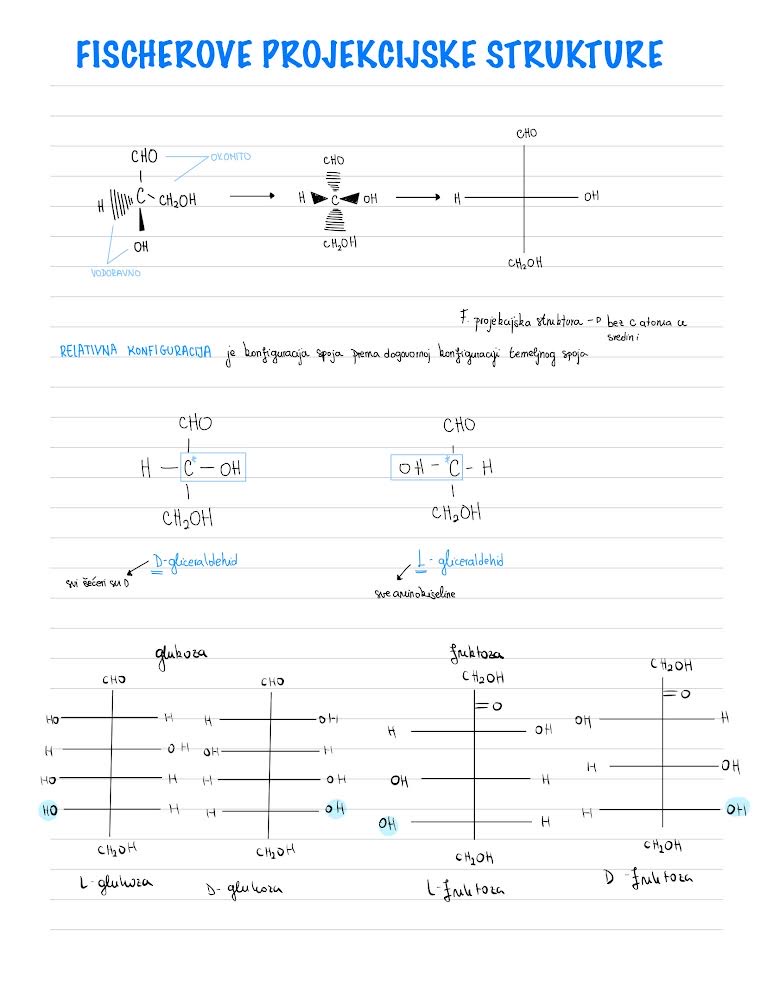 FISCHEROVE PROJEKCIJSKE STRUKTURE
CHO
OKOMITO
H C CH₂OH
OH
VODORAVNO
CHO
H C OH
CH₂OH
CHO
H OH
CH₂OH
F. projekcijska struktura → bez C atoma u
sredini
RELATIVNA KONFIGURACIJA je konfiguracija spoja prema dogovornoj konfiguraciji temeljnog spoja
CHO
H – C* – OH
CH₂OH
D-gliceraldehid
svi šećeri su D
CHO
OH – C* – H
CH₂OH
L - gliceraldehid
sve aminokiseline
glukoza
CHO
HO H
H OH
HO H
HO H
CH₂OH
L- glukoza
CHO
H OH
OH H
H OH
H OH
CH₂OH
D- glukoza
fruktoza
CH₂OH
=O
H OH
OH H
OH H
CH₂OH
L-fruktoza
CH₂OH
=O
OH H
H OH
H OH
CH₂OH
D -fruktoza